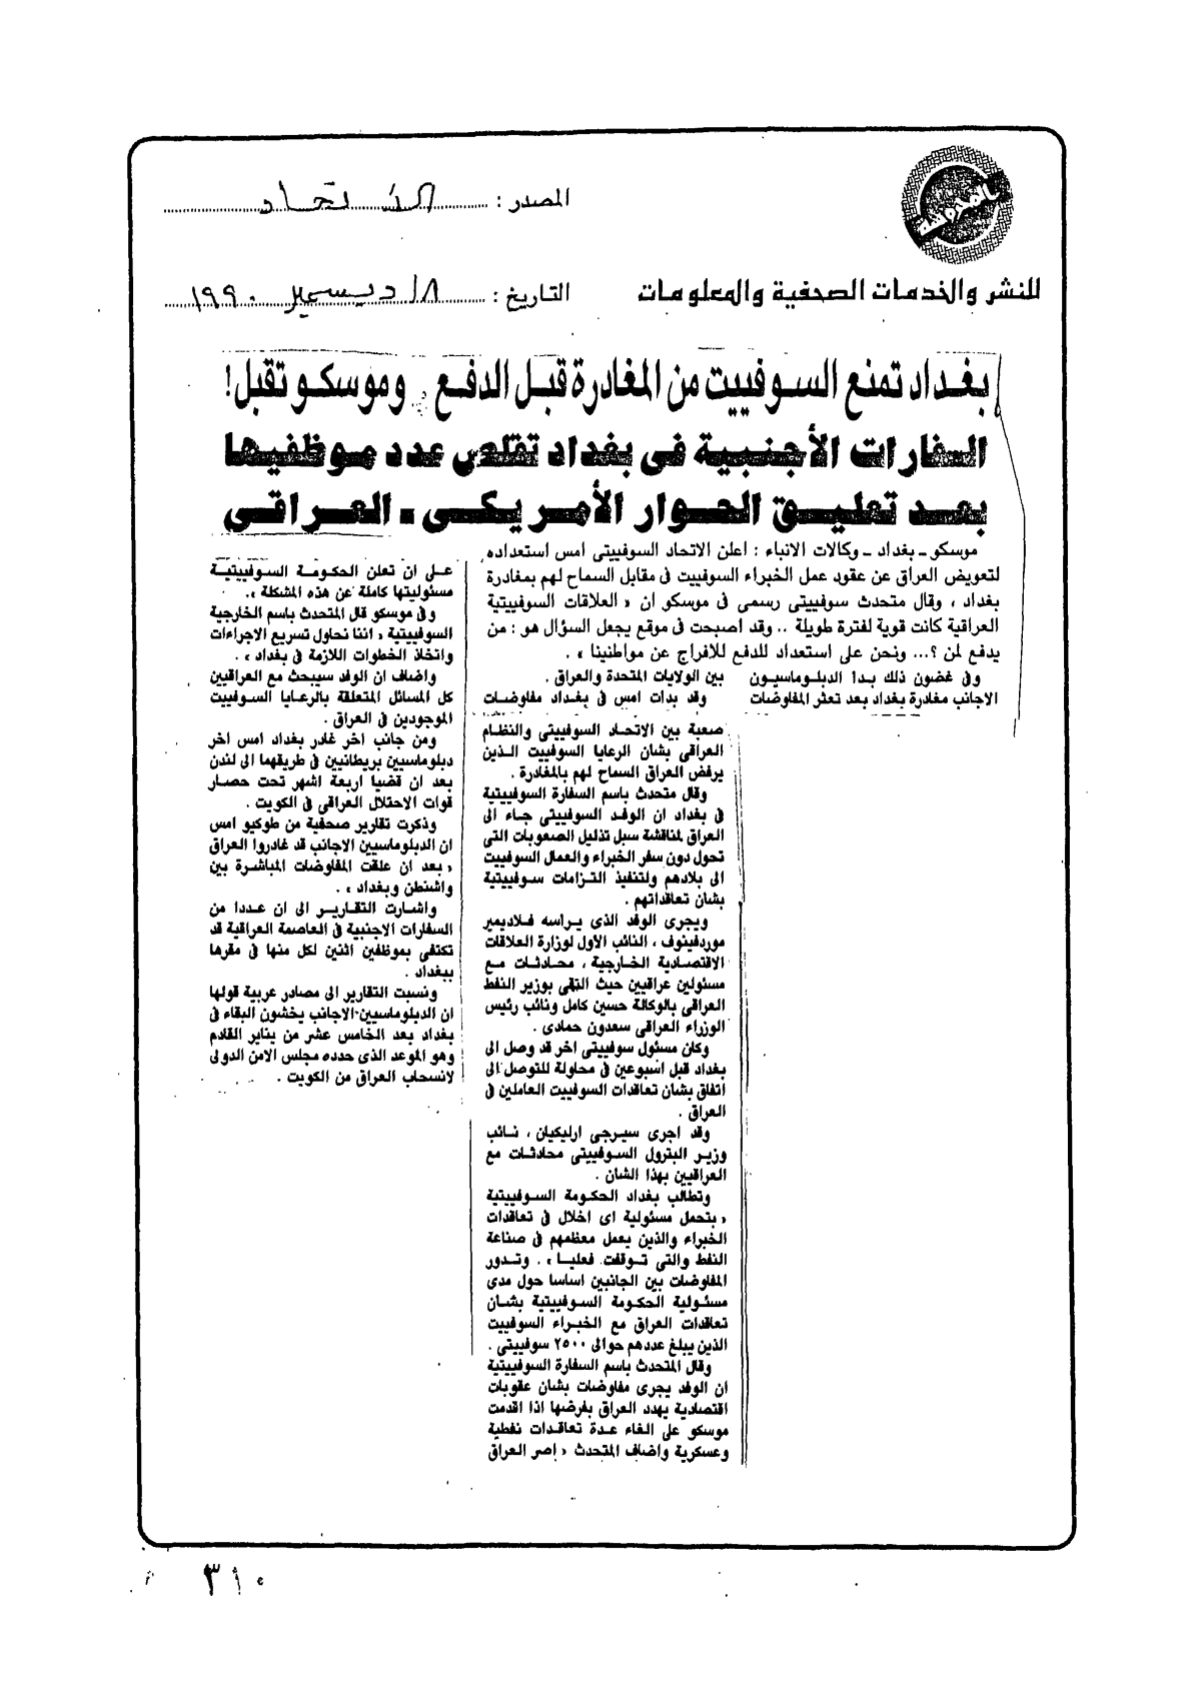 المصدر : الاتحاد
للنشر والخدمات الصحفية والمعلومات
التاريخ : ١٨ ديسمبر ١٩٩٠
بغداد تمنع السوفييت من المغادرة قبل الدفع وموسكو تقبل!
السفارات الأجنبية فى بغداد تقلص عدد موظفيها
بعد تعليق الحوار الأمريكى - العراقى
موسكو - بغداد - وكالات الانباء : اعلن الاتحاد السوفييتى امس استعداده
لتعويض العراق عن عقود عمل الخبراء السوفييت فى مقابل السماح لهم بمغادرة
بغداد ، وقال متحدث سوفييتى رسمى فى موسكو ان « العلاقات السوفييتية
العراقية كانت قوية لفترة طويلة .. وقد اصبحت فى موقع يجعل السؤال هو : من
يدفع لمن ؟... ونحن على استعداد للدفع للافراج عن مواطنينا » .
وفى غضون ذلك بدا الدبلوماسيون
الاجانب مغادرة بغداد بعد تعثر المفاوضات
بين الولايات المتحدة والعراق .
وقد بدات امس فى بغداد مفاوضات
صعبة بين الاتحاد السوفييتى والنظام
العراقى بشان الرعايا السوفييت الذين
يرفض العراق السماح لهم بالمغادرة .
وقال متحدث باسم السفارة السوفييتية
فى بغداد ان الوفد السوفييتى جاء الى
العراق لمناقشة سبل تذليل الصعوبات التى
تحول دون سفر الخبراء والعمال السوفييت
الى بلادهم ولتنفيذ التزامات سوفييتية
بشان تعاقداتهم .
ويجرى الوفد الذى يراسه فلاديمير
موردفينوف ، النائب الاول لوزارة العلاقات
الاقتصادية الخارجية ، محادثات مع
مسئولين عراقيين حيث التقى بوزير النفط
العراقى بالوكالة حسين كامل ونائب رئيس
الوزراء العراقى سعدون حمادى .
وكان مسئول سوفييتى اخر قد وصل الى
بغداد قبل اسبوعين فى محاولة للتوصل الى
اتفاق بشان تعاقدات السوفييت العاملين فى
العراق .
وقد اجرى سيرجى ارليكيان ، نائب
وزير البترول السوفييتى محادثات مع
العراقيين بهذا الشان .
وتطالب بغداد الحكومة السوفييتية
« بتحمل مسئولية اى اخلال فى تعاقدات
الخبراء والذين يعمل معظمهم فى صناعة
النفط والتى توقفت فعليا » . وتدور
المفاوضات بين الجانبين اساسا حول مدى
مسئولية الحكومة السوفييتية بشان
تعاقدات العراق مع الخبراء السوفييت
الذين يبلغ عددهم حوالى ٢٥٠٠ سوفييتى .
وقال المتحدث باسم السفارة السوفييتية
ان الوفد يجرى مفاوضات بشان عقوبات
اقتصادية يهدد العراق بفرضها اذا اقدمت
موسكو على الغاء عدة تعاقدات نفطية
وعسكرية واضاف المتحدث « اصر العراق
على ان تعلن الحكومة السوفييتية
مسئوليتها كاملة عن هذه المشكلة » .
وفى موسكو قال المتحدث باسم الخارجية
السوفييتية « اننا نحاول تسريع الاجراءات
واتخاذ الخطوات اللازمة فى بغداد » .
واضاف ان الوفد سيبحث مع العراقيين
كل المسائل المتعلقة بالرعايا السوفييت
الموجودين فى العراق .
ومن جانب اخر غادر بغداد امس اخر
دبلوماسيين بريطانيين فى طريقهما الى لندن
بعد ان قضيا اربعة اشهر تحت حصار
قوات الاحتلال العراقى فى الكويت .
وذكرت تقارير صحفية من طوكيو امس
ان الدبلوماسيين الاجانب قد غادروا العراق
« بعد ان علقت المفاوضات المباشرة بين
واشنطن وبغداد » .
واشارت التقارير الى ان عددا من
السفارات الاجنبية فى العاصمة العراقية قد
تكتفى بموظفين اثنين لكل منها فى مقرها
ببغداد .
ونسبت التقارير الى مصادر عربية قولها
ان الدبلوماسيين الاجانب يخشون البقاء فى
بغداد بعد الخامس عشر من يناير القادم
وهو الموعد الذى حدده مجلس الامن الدولى
لانسحاب العراق من الكويت .
٣١٠